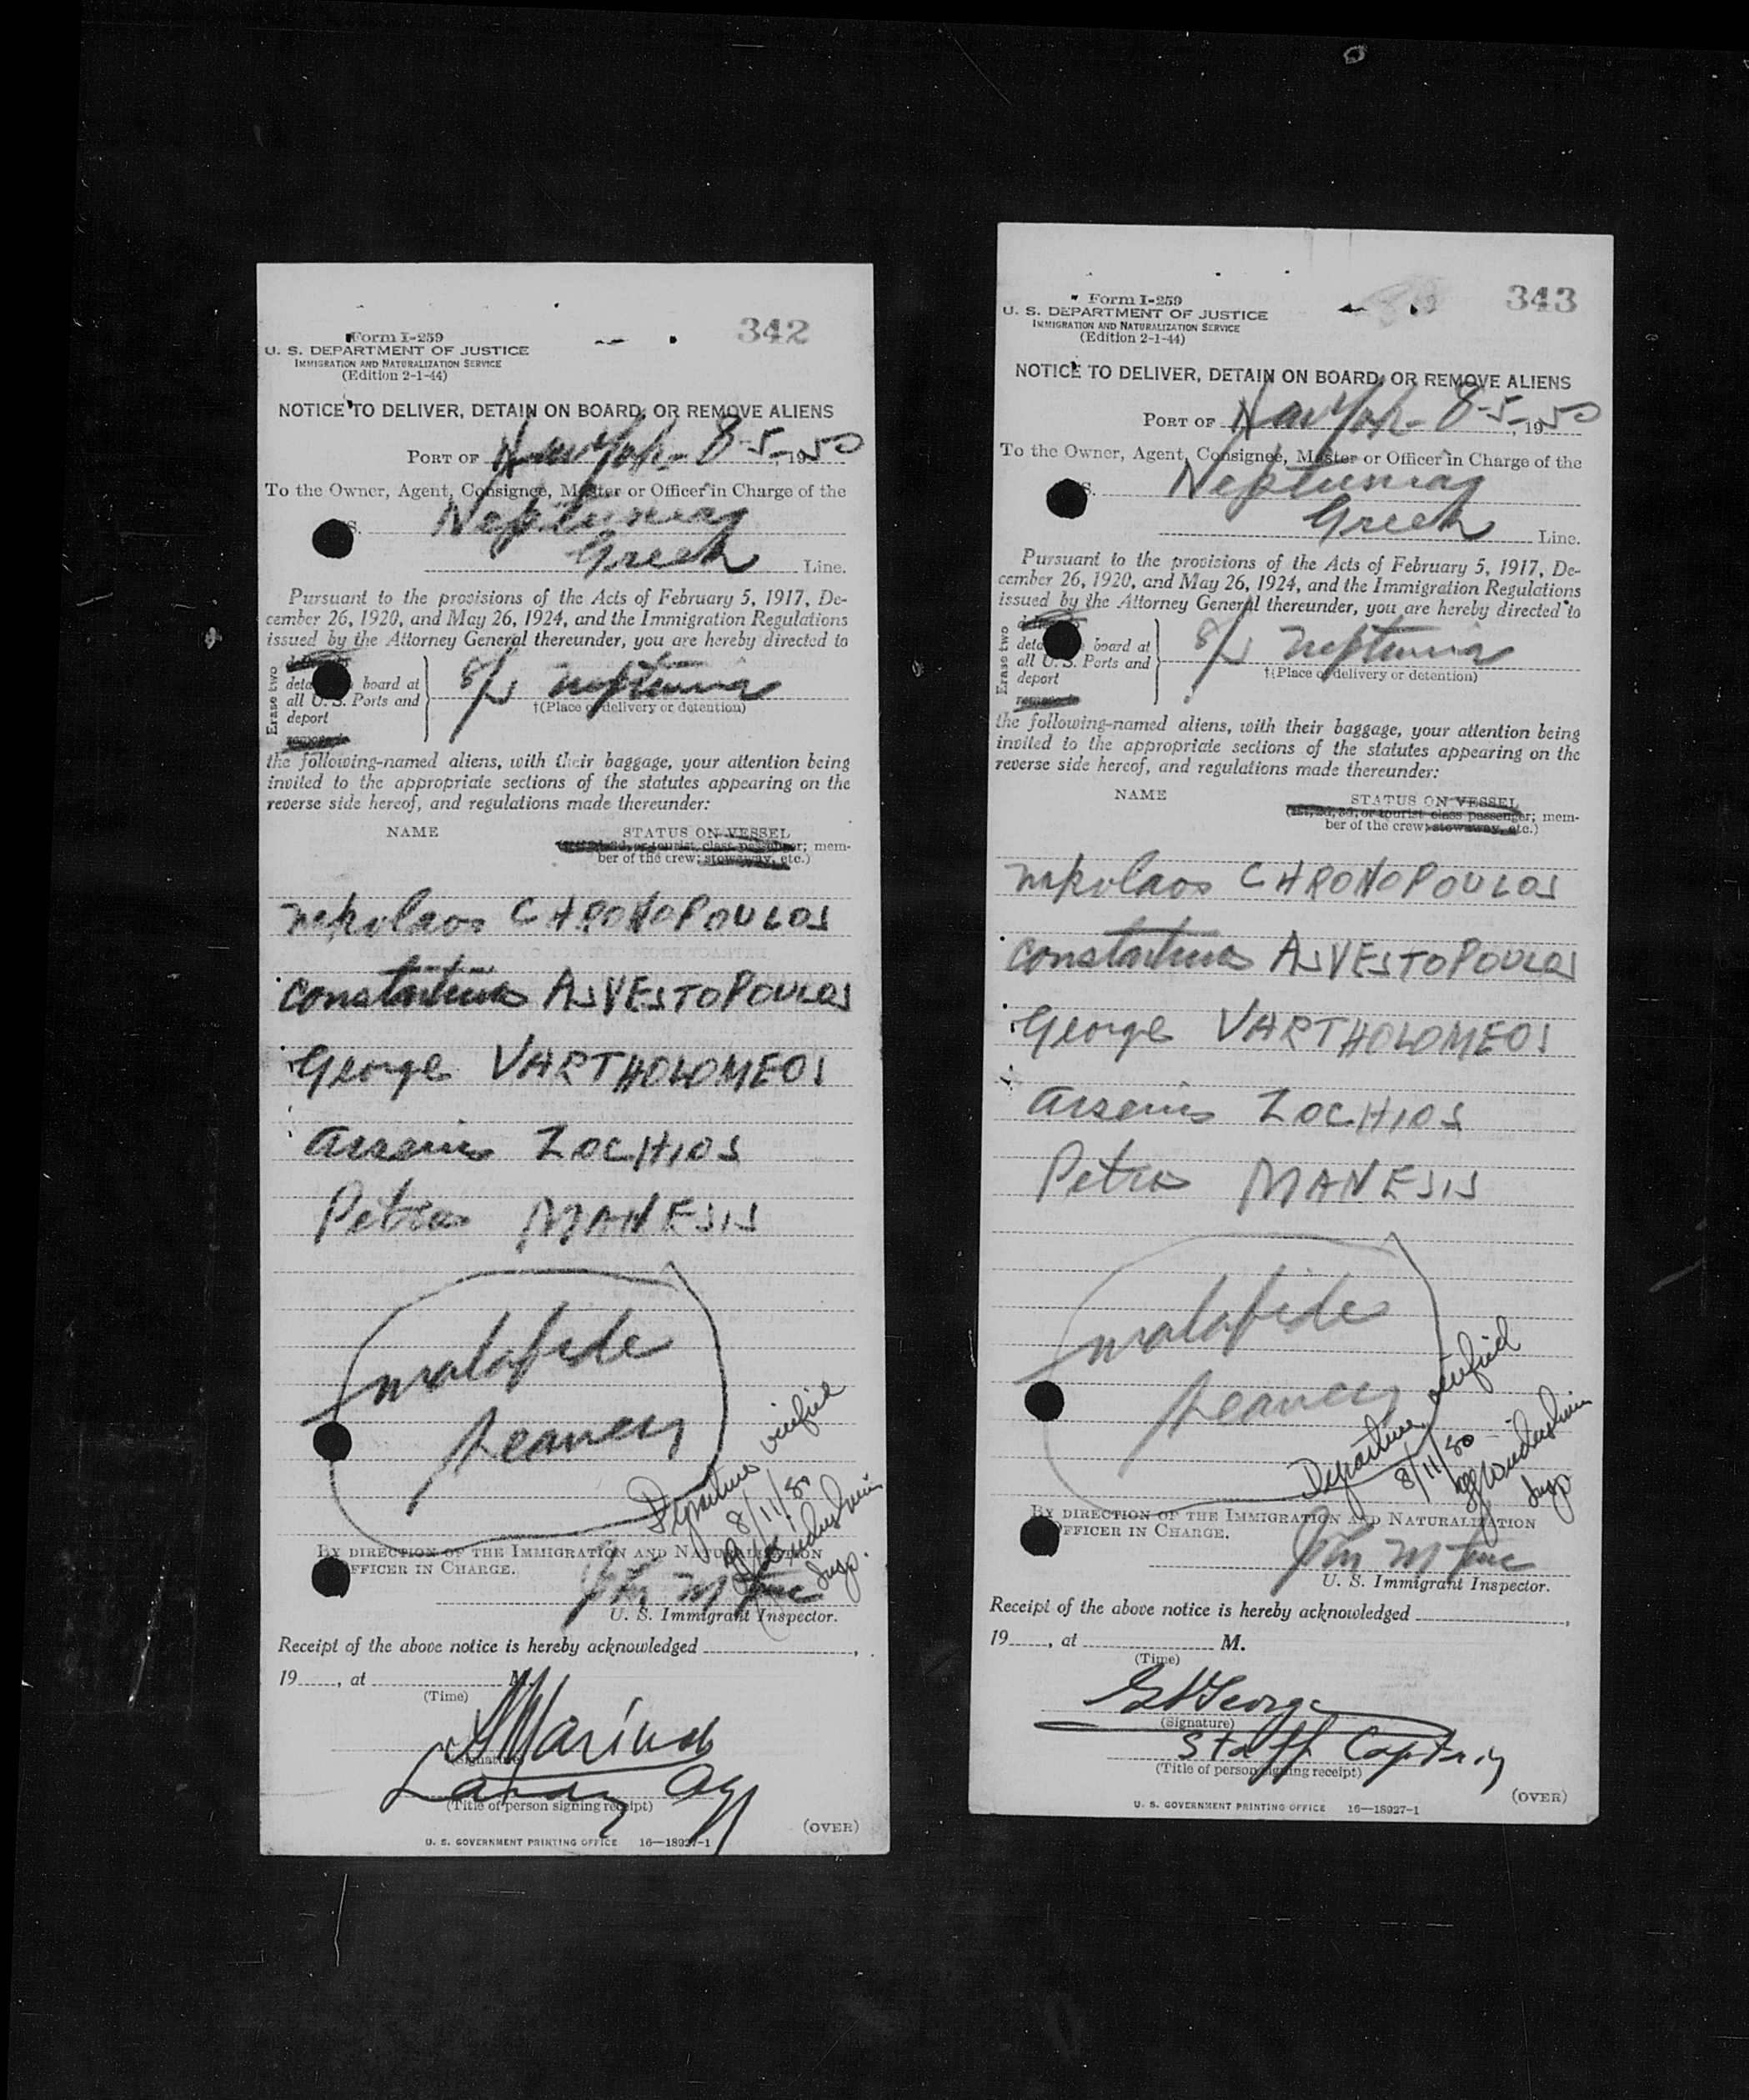 342
Form I-259
U. S. DEPARTMENT OF JUSTICE
IMMIGRATION AND NATURALIZATION SERVICE
(Edition 2-1-44)
NOTICE TO DELIVER, DETAIN ON BOARD, OR REMOVE ALIENS
PORT OF New York 8-5-, 1950
To the Owner, Agent, Consignee, Master or Officer in Charge of the
S. Neptunia
Greek Line.
Pursuant to the provisions of the Acts of February 5, 1917, De-
cember 26, 1920, and May 26, 1924, and the Immigration Regulations
issued by the Attorney General thereunder, you are hereby directed to
Erase two
deta board at
all U. S. Ports and
deport
S/S Neptunia
†(Place of delivery or detention)
the following-named aliens, with their baggage, your attention being
invited to the appropriate sections of the statutes appearing on the
reverse side hereof, and regulations made thereunder:
NAME STATUS ON VESSEL
(1st, 2d, 3d, or tourist class passenger; mem-
ber of the crew; stowaway, etc.)
Nikolaos CHRONOPOULOS
Constantinos ASVESTOPOULOS
George VARTHOLOMEOS
Arsenios ZOCHIOS
Petros MANESIS
malafide
seamen
Departure verified
8/11/50
Insp.
BY DIRECTION OF THE IMMIGRATION AND NATURALIZATION
OFFICER IN CHARGE.
U. S. Immigrant Inspector.
Receipt of the above notice is hereby acknowledged ,
19 , at M.
(Time)
(Signature)
(Title of person signing receipt)
(OVER)
U. S. GOVERNMENT PRINTING OFFICE 16—18927-1
343
Form I-259
U. S. DEPARTMENT OF JUSTICE
IMMIGRATION AND NATURALIZATION SERVICE
(Edition 2-1-44)
NOTICE TO DELIVER, DETAIN ON BOARD, OR REMOVE ALIENS
PORT OF New York 8-5-, 1950
To the Owner, Agent, Consignee, Master or Officer in Charge of the
S. Neptunia
Greek Line.
Pursuant to the provisions of the Acts of February 5, 1917, De-
cember 26, 1920, and May 26, 1924, and the Immigration Regulations
issued by the Attorney General thereunder, you are hereby directed to
Erase two
deta board at
all U. S. Ports and
deport
S/S Neptunia
†(Place of delivery or detention)
the following-named aliens, with their baggage, your attention being
invited to the appropriate sections of the statutes appearing on the
reverse side hereof, and regulations made thereunder:
NAME STATUS ON VESSEL
(1st, 2d, 3d, or tourist class passenger; mem-
ber of the crew; stowaway, etc.)
Nikolaos CHRONOPOULOS
Constantinos ASVESTOPOULOS
George VARTHOLOMEOS
Arsenios ZOCHIOS
Petros MANESIS
malafide
seamen
Departure verified
8/11/50
Insp
BY DIRECTION OF THE IMMIGRATION AND NATURALIZATION
OFFICER IN CHARGE.
U. S. Immigrant Inspector.
Receipt of the above notice is hereby acknowledged ,
19 , at M.
(Time)
(Signature)
Staff Captain
(Title of person signing receipt)
(OVER)
U. S. GOVERNMENT PRINTING OFFICE 16—18927-1